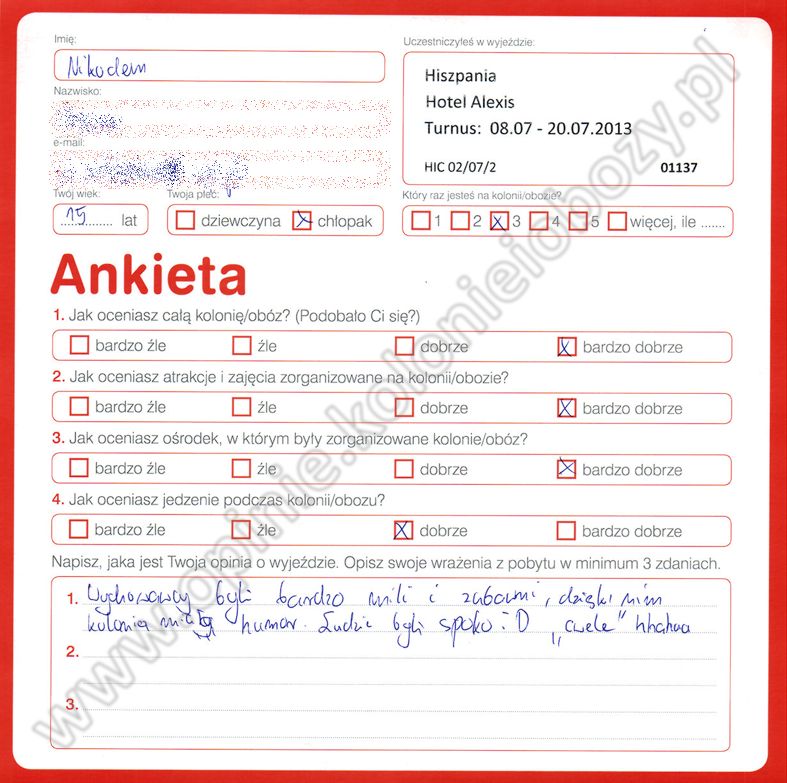 Imię:
Nikodem
Nazwisko:
e-mail:
Twój wiek:
15 lat
Twoja płeć:
dziewczyna chłopak
Uczestniczyłeś w wyjeździe:
Hiszpania
Hotel Alexis
Turnus: 08.07 - 20.07.2013
HIC 02/07/2 01137
Który raz jesteś na kolonii/obozie?
1 2 3 4 5 więcej, ile .......
Ankieta
1. Jak oceniasz całą kolonię/obóz? (Podobało Ci się?)
bardzo źle źle dobrze bardzo dobrze
2. Jak oceniasz atrakcje i zajęcia zorganizowane na kolonii/obozie?
bardzo źle źle dobrze bardzo dobrze
3. Jak oceniasz ośrodek, w którym były zorganizowane kolonie/obóz?
bardzo źle źle dobrze bardzo dobrze
4. Jak oceniasz jedzenie podczas kolonii/obozu?
bardzo źle źle dobrze bardzo dobrze
Napisz, jaka jest Twoja opinia o wyjeździe. Opisz swoje wrażenia z pobytu w minimum 3 zdaniach.
1. Wychowawcy byli bardzo mili i zabawni, dzięki nim
kolonia miała humor. Ludzie byli spoko :D „cwele” hhahaa
2.
3.
www.opinie.kolonieiobozy.pl